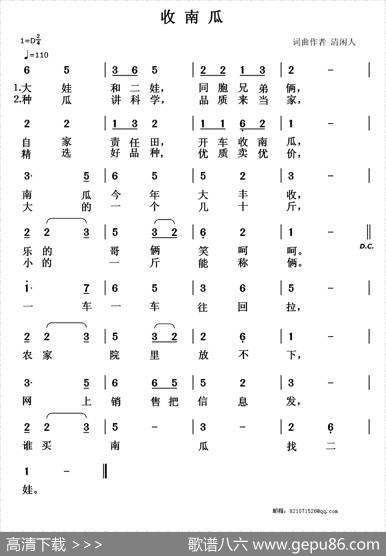 收南瓜
1=D 2/4
词曲作者 清闲人
♩=110
6 5 | 3 6 5 | 2 2 1 3 | 2 - |
1.大娃 和二娃， 同胞兄弟 俩，
2.种瓜 讲科学， 品质来当 家，
2 2 | 1 3 2 | 2 2 1 6 | 2 - |
自家 责任田， 开车收南 瓜，
精选 好品种， 优质卖优 价，
3· 5 | 6 5 | 5 2 | 3 - |
南瓜今年大丰收，
大的一个几十斤，
2 2 3 | 5 3 | 3 2 6 | 2 - ‖
乐的哥俩笑呵呵。
D.C.
小的一斤能称俩。
1· 7 | 6 5 | 5 3 | 6 - |
一车一车往回拉，
2 2 3 | 1 5 | 3 2 | 6 - |
农家院里放不下，
3· 5 | 6 6 5 | 5 2 | 3 - |
网上销售把信息发，
2 2 3 | 5 - | 3 - | 2 6 |
谁买南瓜找二
1 - ‖
娃。
邮箱：821071528@qq.com
高清下载 >>>
歌谱八六 www.gepu86.com